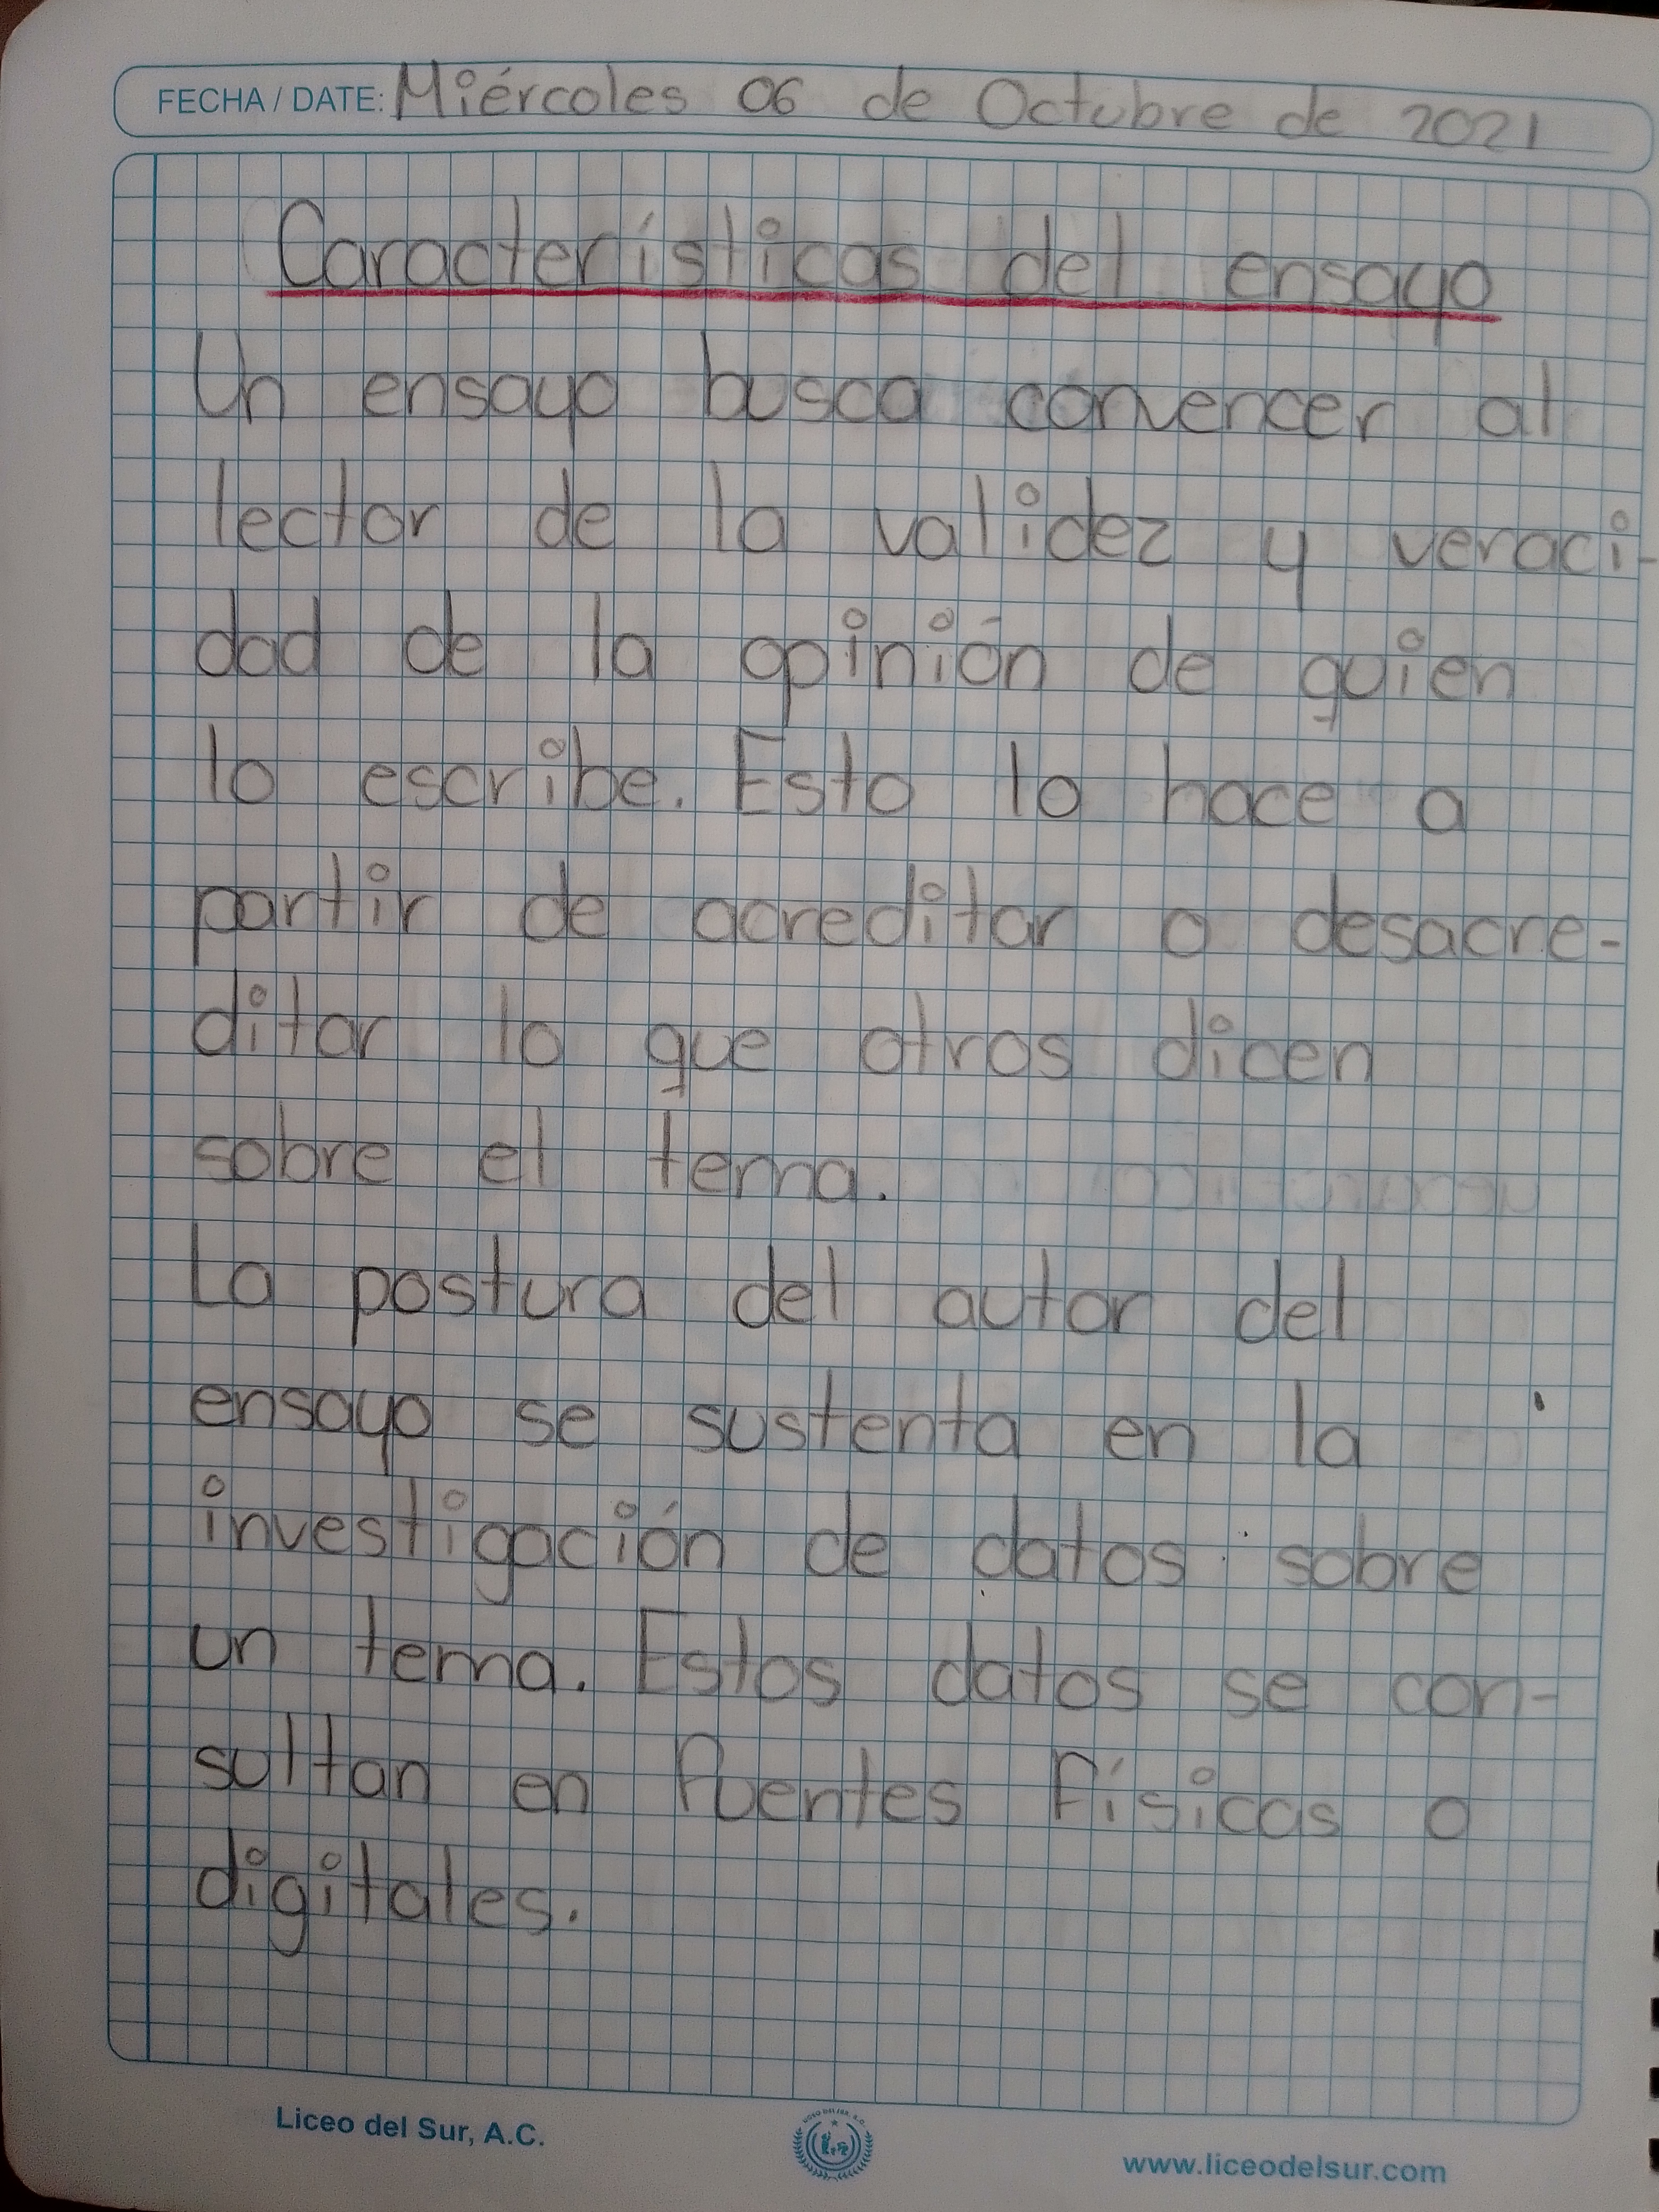 FECHA / DATE: Miércoles 06 de Octubre de 2021
Características del ensayo
Un ensayo busca convencer al
lector de la validez y veraci-
dad de la opinión de quien
lo escribe. Esto lo hace a
partir de acreditar o desacre-
ditar lo que otros dicen
sobre el tema.
La postura del autor del
ensayo se sustenta en la
investigación de datos sobre
un tema. Estos datos se con-
sultan en fuentes físicas o
digitales.
Liceo del Sur, A.C.
www.liceodelsur.com